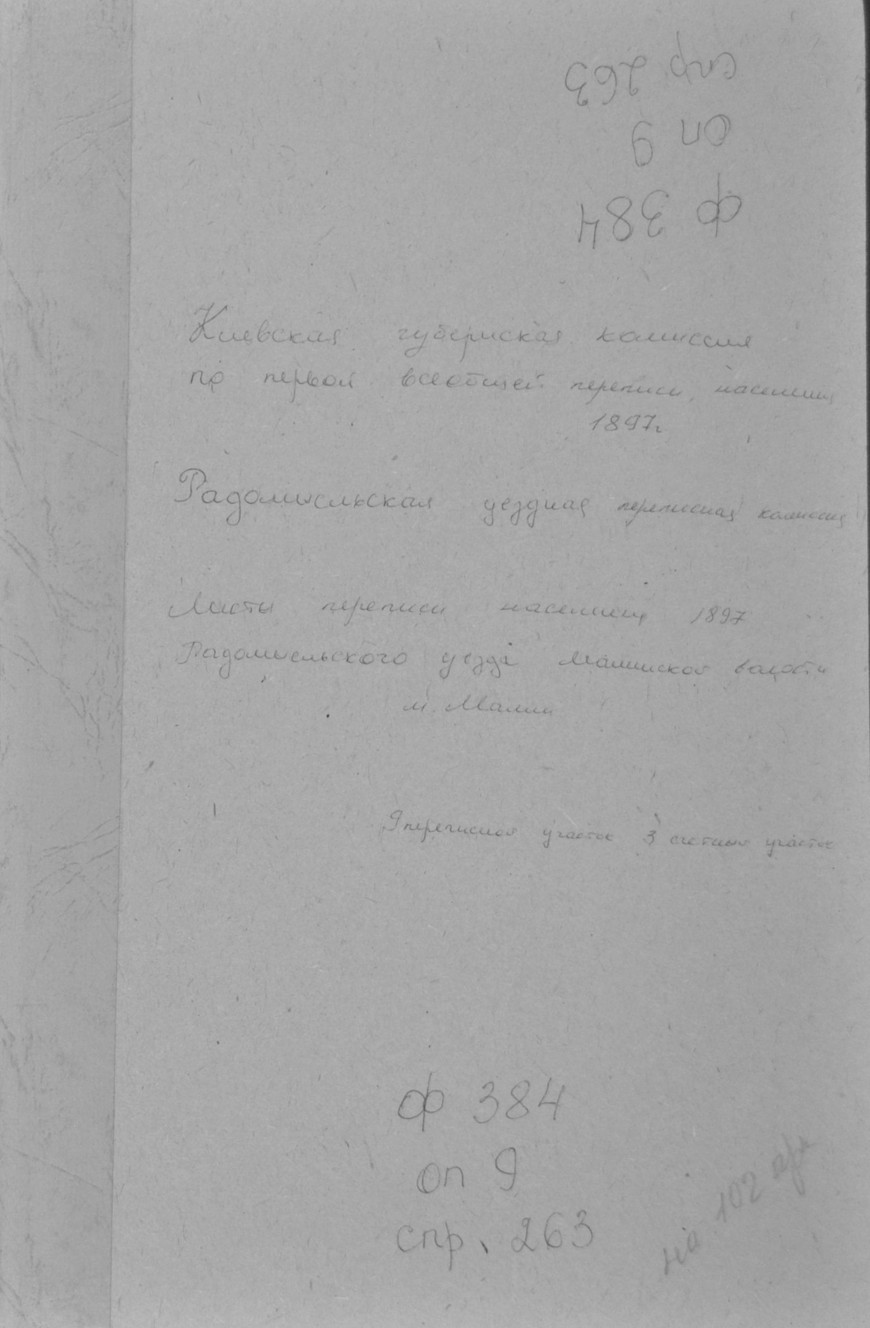 ф 384
оп 9
спр 263
Киевская губернская комиссия
по первой всеобщей переписи населения
1897г
Радомысльская уездная переписная комиссия
Листы переписи населения 1897
Радомысльского уезда Малинской волости
м. Малин
9 переписной участок 3 счетный участок
ф 384
оп 9
спр. 263
на 102 арк